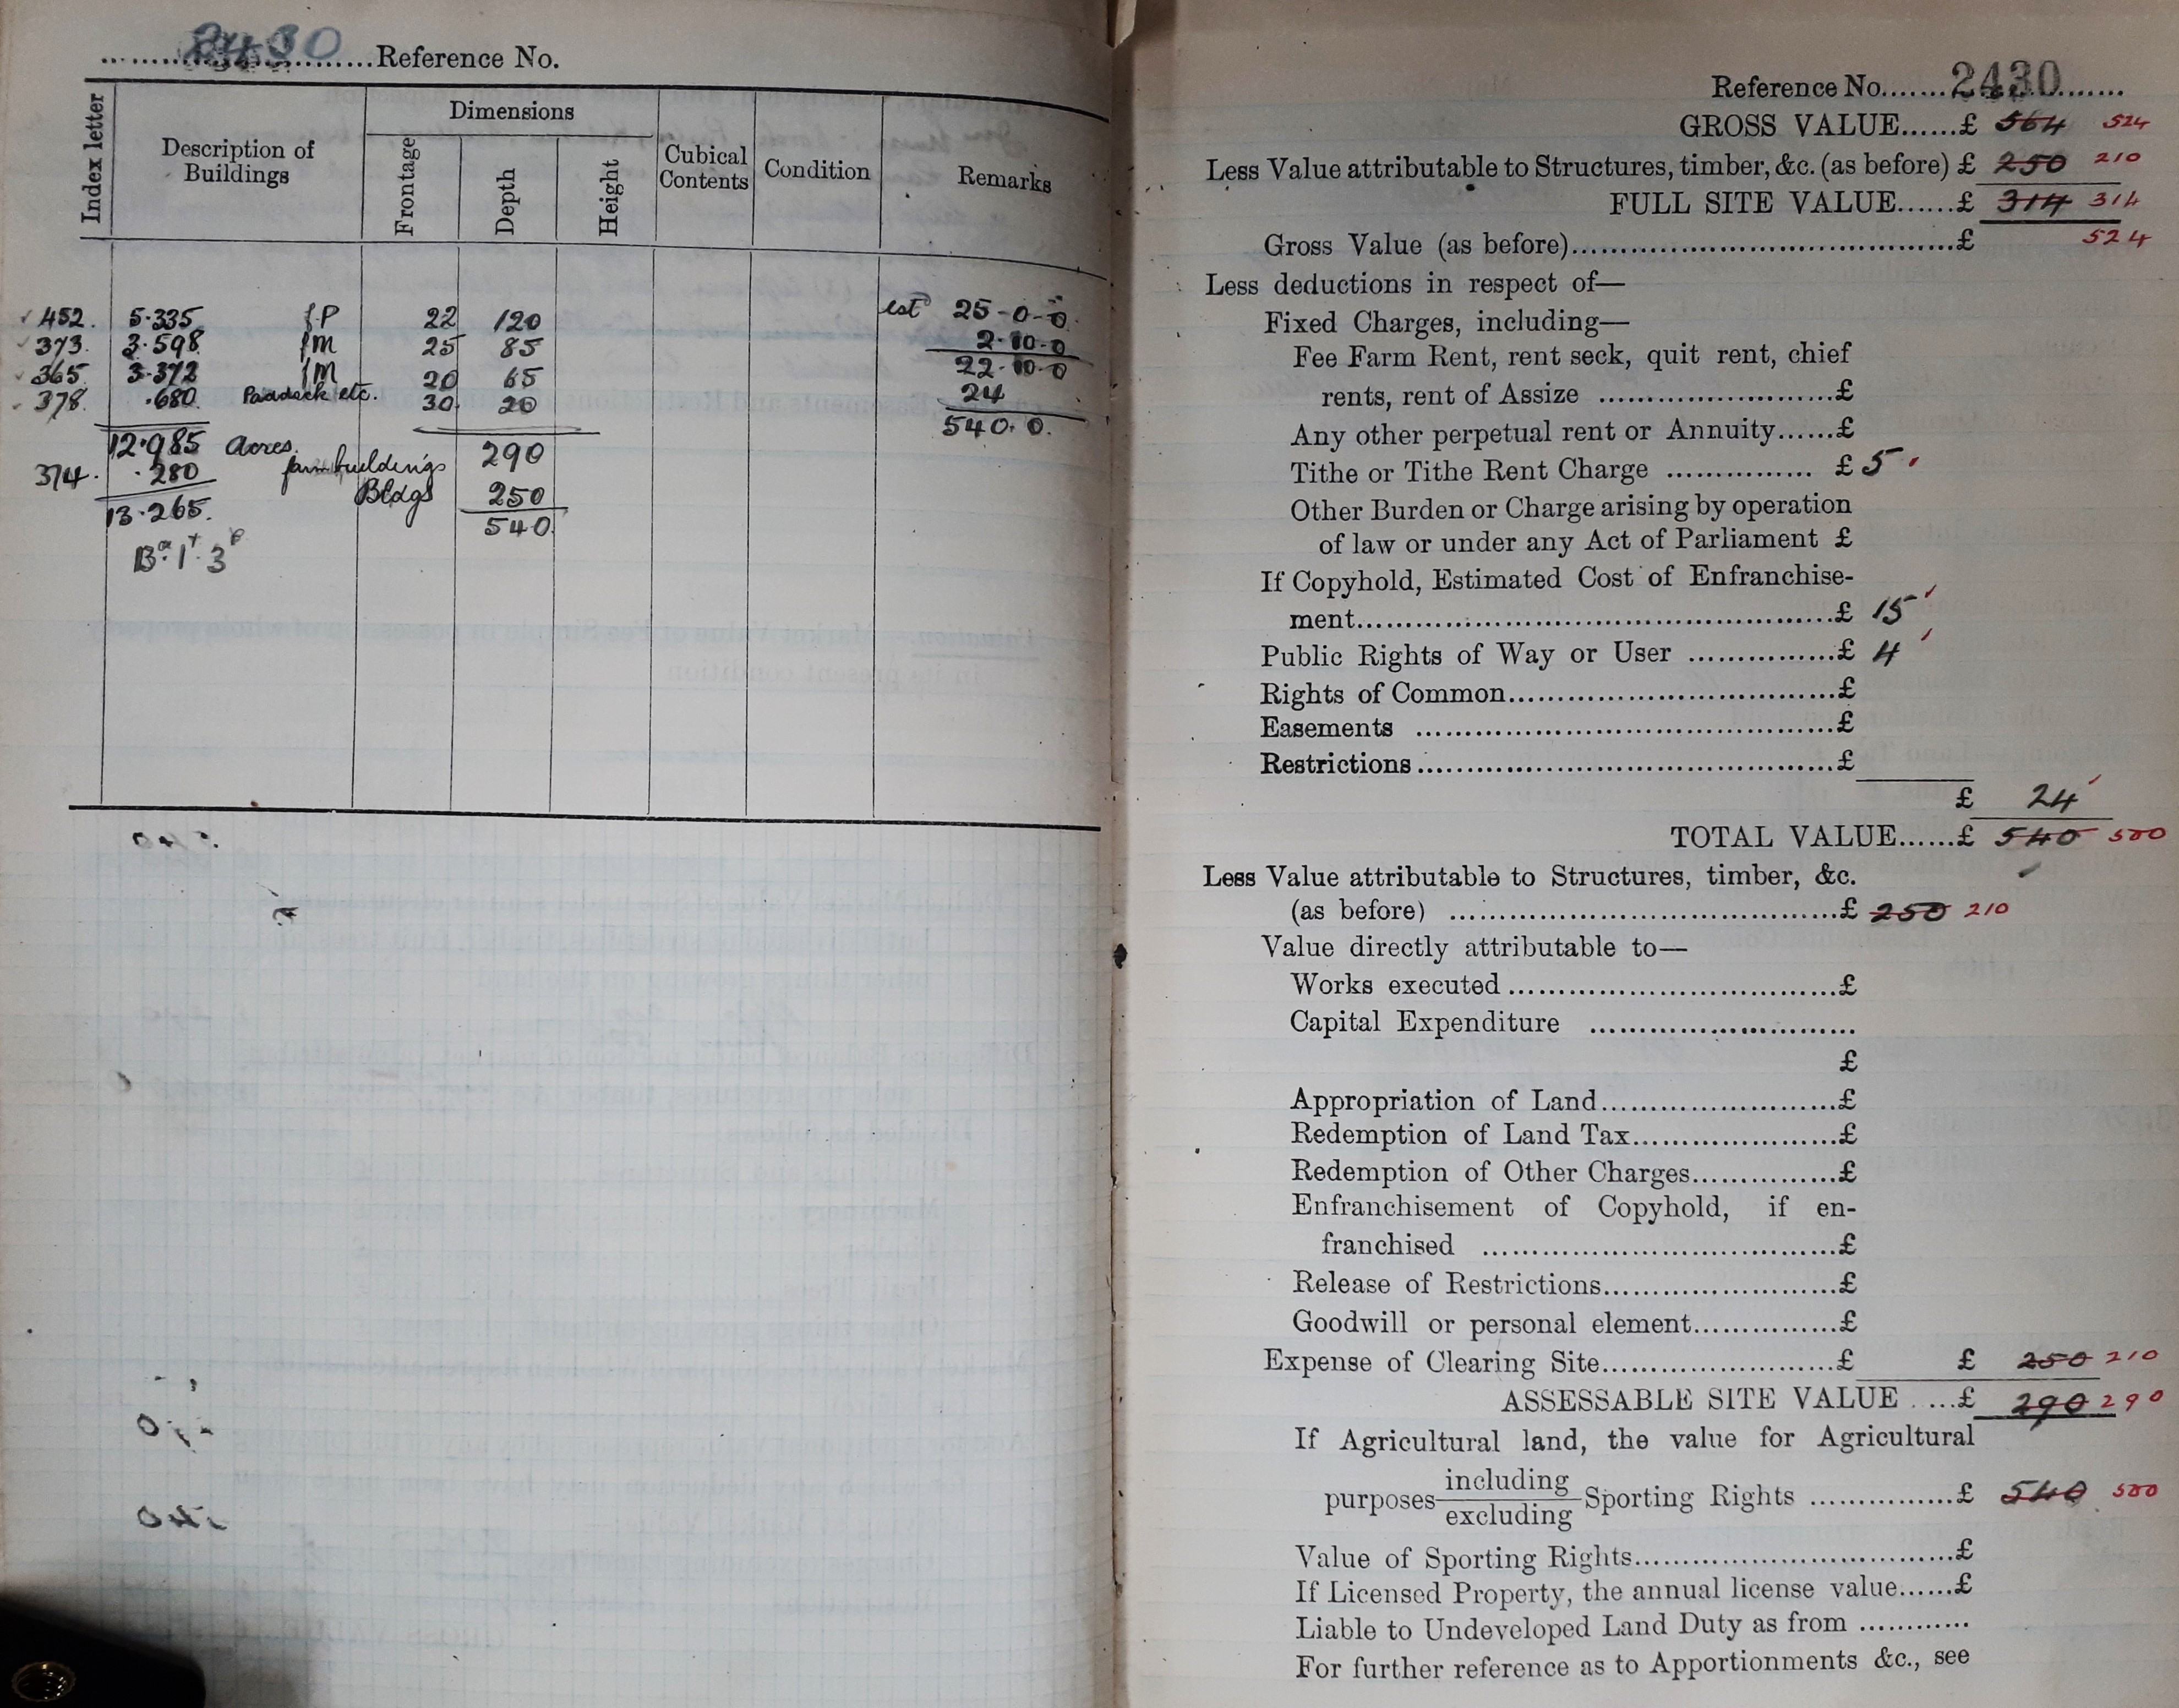 2430 Reference No.
Index letter
Description of Buildings
Dimensions
Frontage
Depth
Height
Cubical Contents
Condition
Remarks
452. 5.335 f P 22 120 est 25-0-0
373. 3.598 f m 25 85 2.10.0
365. 3.372 f m 20 65 22.10.0
378. .680 Paddock etc. 30 20 24
540.0.
12.985 Acres. 290
374. .280 farm buildings
Bldgs 250
13.265. 540
13a. 1r. 3p
Reference No. 2430
GROSS VALUE......£ 564 524
Less Value attributable to Structures, timber, &c. (as before) £ 250 210
FULL SITE VALUE......£ 314 314
Gross Value (as before)......£ 524
Less deductions in respect of—
Fixed Charges, including—
Fee Farm Rent, rent seck, quit rent, chief
rents, rent of Assize ......£
Any other perpetual rent or Annuity......£
Tithe or Tithe Rent Charge ......£ 5
Other Burden or Charge arising by operation
of law or under any Act of Parliament £
If Copyhold, Estimated Cost of Enfranchise-
ment......£ 15
Public Rights of Way or User ......£ 4
Rights of Common......£
Easements ......£
Restrictions......£
£ 24
TOTAL VALUE......£ 540 500
Less Value attributable to Structures, timber, &c.
(as before) ......£ 250 210
Value directly attributable to—
Works executed......£
Capital Expenditure ......
£
Appropriation of Land......£
Redemption of Land Tax......£
Redemption of Other Charges......£
Enfranchisement of Copyhold, if en-
franchised ......£
Release of Restrictions......£
Goodwill or personal element......£
Expense of Clearing Site......£ £ 250 210
ASSESSABLE SITE VALUE ....£ 290 290
If Agricultural land, the value for Agricultural
purposes including excluding Sporting Rights ......£ 540 500
Value of Sporting Rights......£
If Licensed Property, the annual license value......£
Liable to Undeveloped Land Duty as from ............
For further reference as to Apportionments &c., see